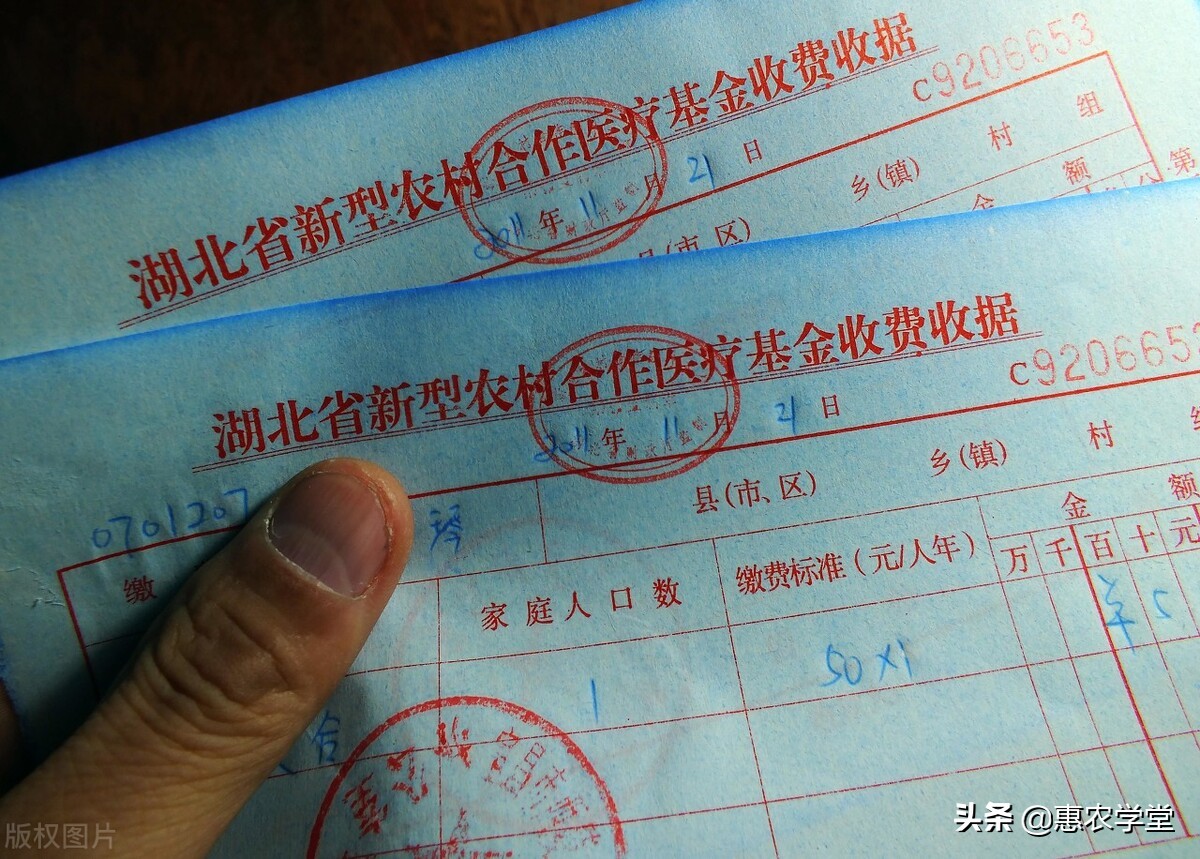 湖北省新型农村合作医疗基金收费收据
C9206653
2011年11月21日
县(市、区) 乡(镇) 村 组
金 额
第
湖北省新型农村合作医疗基金收费收据
C920665
2011年11月21日
0701207
琴 县(市、区) 乡(镇) 村
缴 家庭人口数 缴费标准(元/人年) 金 额
万 千 百 十 元
1 50×1 5
合
头条 @惠农学堂
版权图片